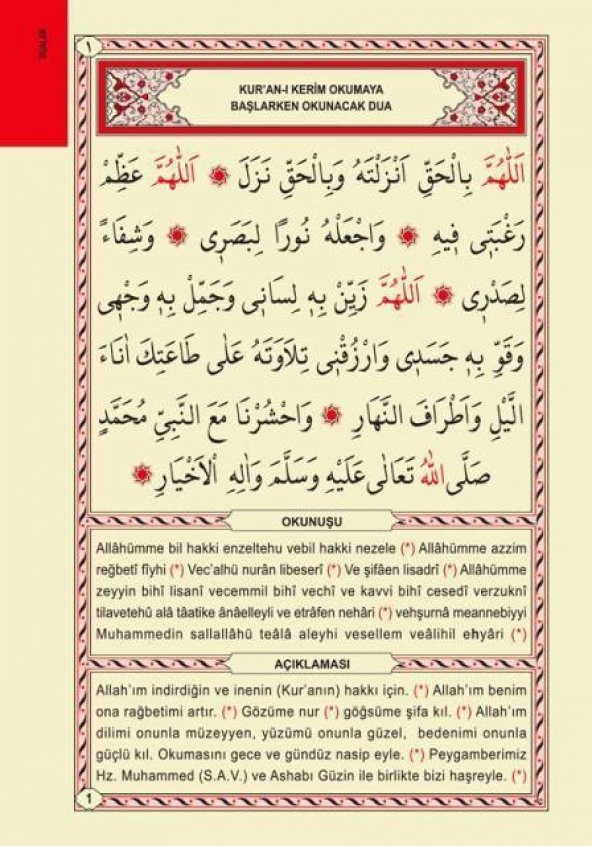 DUALAR
١
KUR'AN-I KERİM OKUMAYA
BAŞLARKEN OKUNACAK DUA
اَللّٰهُمَّ بِالْحَقِّ اَنْزَلْتَهُ وَبِالْحَقِّ نَزَلَ ۞ اَللّٰهُمَّ عَظِّمْ
رَغْبَتٖى فٖيهِ ۞ وَاجْعَلْهُ نُورًا لِبَصَرٖى ۞ وَشِفَاءً
لِصَدْرٖى ۞ اَللّٰهُمَّ زَيِّنْ بِهٖ لِسَانٖى وَجَمِّلْ بِهٖ وَجْهٖى
وَقَوِّ بِهٖ جَسَدٖى وَارْزُقْنٖى تِلَاوَتَهُ عَلٰى طَاعَتِكَ اٰنَاءَ
الَّيْلِ وَاَطْرَافَ النَّهَارِ ۞ وَاحْشُرْنَا مَعَ النَّبِيِّ مُحَمَّدٍ
صَلَّى اللّٰهُ تَعَالٰى عَلَيْهِ وَسَلَّمَ وَاٰلِهِ الْاَخْيَارِ ۞
OKUNUŞU
Allâhümme bil hakki enzeltehu vebil hakki nezele (*) Allâhümme azzim
reğbetî fîyhi (*) Vec'alhü nurân libeserî (*) Ve şifâen lisadrî (*) Allâhümme
zeyyin bihî lisanî vecemmil bihî vechî ve kavvi bihî cesedî verzuknî
tilavetehû alâ tâatike ânâelleyli ve etrâfen nehâri (*) vehşurnâ meannebiyyi
Muhammedin sallallâhü teâlâ aleyhi vesellem veâlihil ehyâri (*)
AÇIKLAMASI
Allah'ım indirdiğin ve inenin (Kur'anın) hakkı için. (*) Allah'ım benim
ona rağbetimi artır. (*) Gözüme nur (*) göğsüme şifa kıl. (*) Allah'ım
dilimi onunla müzeyyen, yüzümü onunla güzel, bedenimi onunla
güçlü kıl. Okumasını gece ve gündüz nasip eyle. (*) Peygamberimiz
Hz. Muhammed (S.A.V.) ve Ashabı Güzin ile birlikte bizi haşreyle. (*)
1